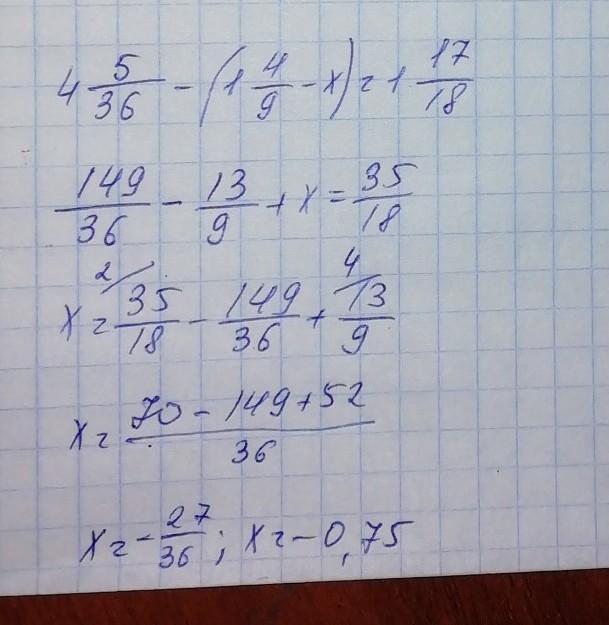 4 5/36 - (1 4/9 - x) = 1 17/18
149/36 - 13/9 + x = 35/18
x = 2/ 35/18 - 149/36 + 4/ 13/9
x = (70 - 149 + 52)/36
x = - 27/36 ; x = -0,75